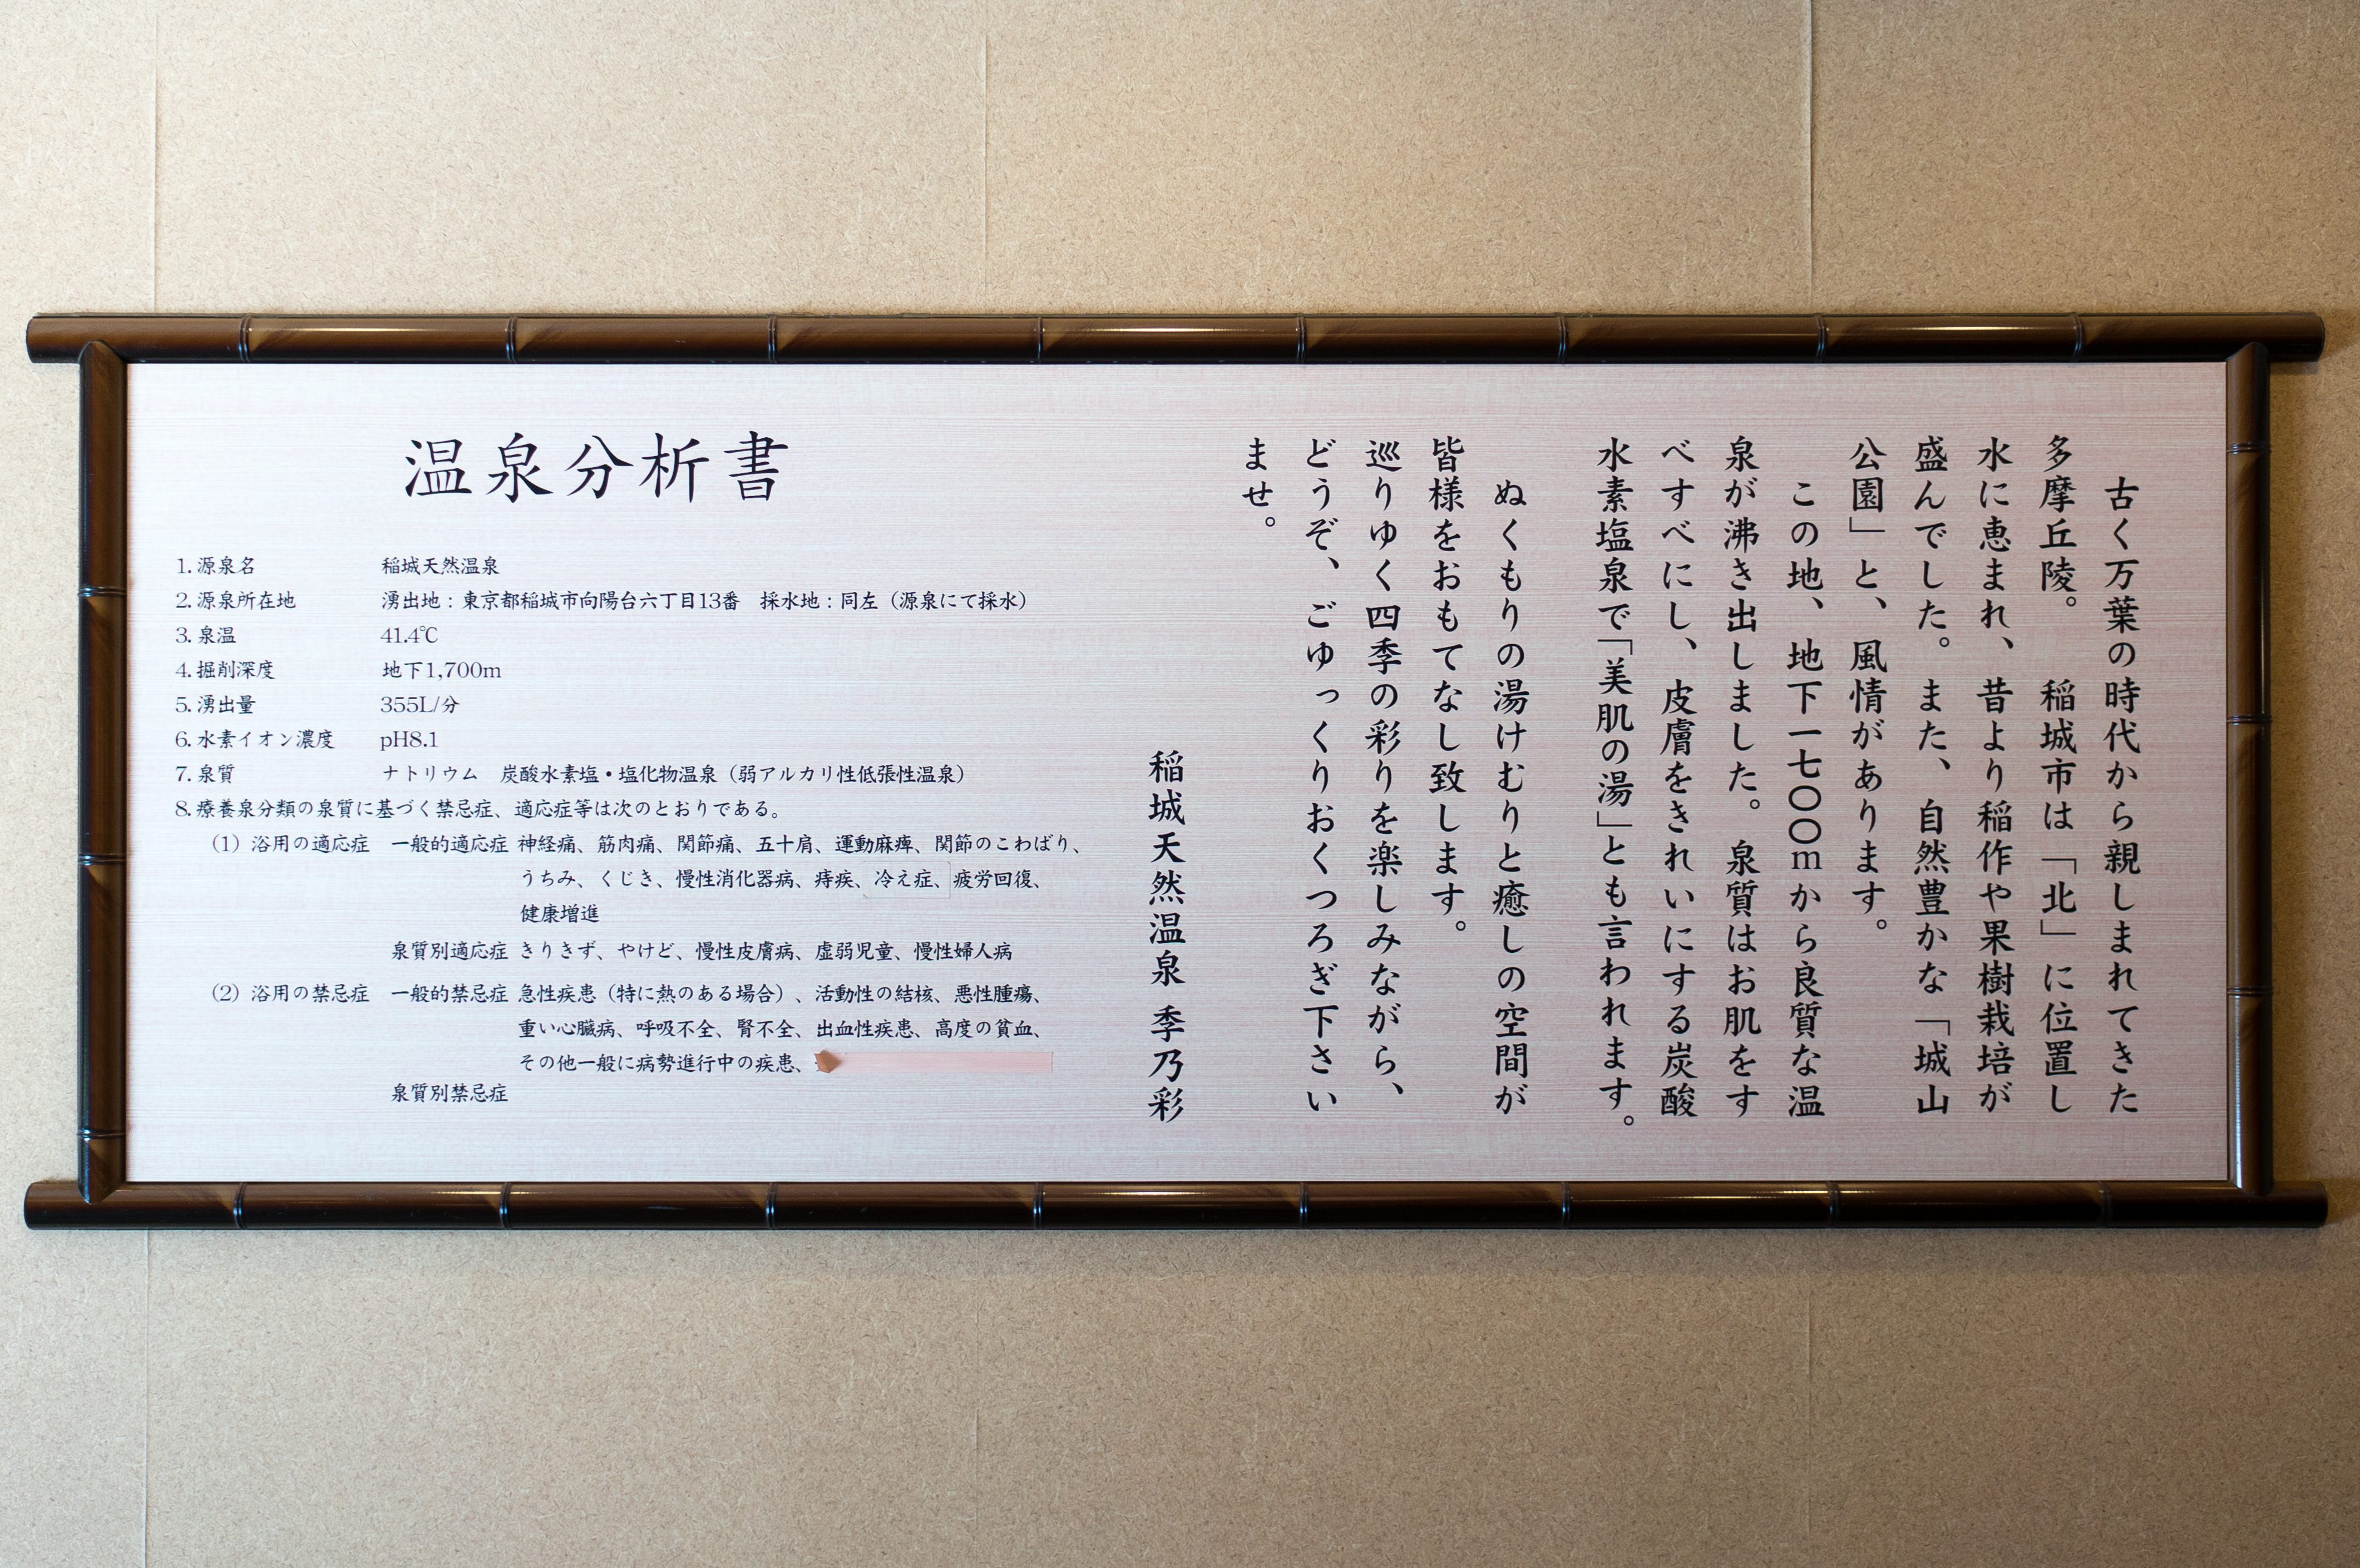 古く万葉の時代から親しまれてきた
多摩丘陵。 稲城市は「北」に位置し
水に恵まれ、昔より稲作や果樹栽培が
盛んでした。また、自然豊かな「城山
公園」と、風情があります。
この地、地下一七〇〇mから良質な温
泉が沸き出しました。泉質はお肌をす
べすべにし、皮膚をきれいにする炭酸
水素塩泉で「美肌の湯」とも言われます。
ぬくもりの湯けむりと癒しの空間が
皆様をおもてなし致します。
巡りゆく四季の彩りを楽しみながら、
どうぞ、ごゆっくりおくつろぎ下さい
ませ。
稲城天然温泉 季乃彩
温泉分析書
1. 源泉名 稲城天然温泉
2. 源泉所在地 湧出地：東京都稲城市向陽台六丁目13番 採水地：同左（源泉にて採水）
3. 泉温 41.4℃
4. 掘削深度 地下1,700m
5. 湧出量 355L/分
6. 水素イオン濃度 pH8.1
7. 泉質 ナトリウム 炭酸水素塩・塩化物温泉（弱アルカリ性低張性温泉）
8. 療養泉分類の泉質に基づく禁忌症、適応症等は次のとおりである。
（1）浴用の適応症 一般的適応症 神経痛、筋肉痛、関節痛、五十肩、運動麻痺、関節のこわばり、
うちみ、くじき、慢性消化器病、痔疾、冷え症、疲労回復、
健康増進
泉質別適応症 きりきず、やけど、慢性皮膚病、虚弱児童、慢性婦人病
（2）浴用の禁忌症 一般的禁忌症 急性疾患（特に熱のある場合）、活動性の結核、悪性腫瘍、
重い心臓病、呼吸不全、腎不全、出血性疾患、高度の貧血、
その他一般に病勢進行中の疾患、
泉質別禁忌症